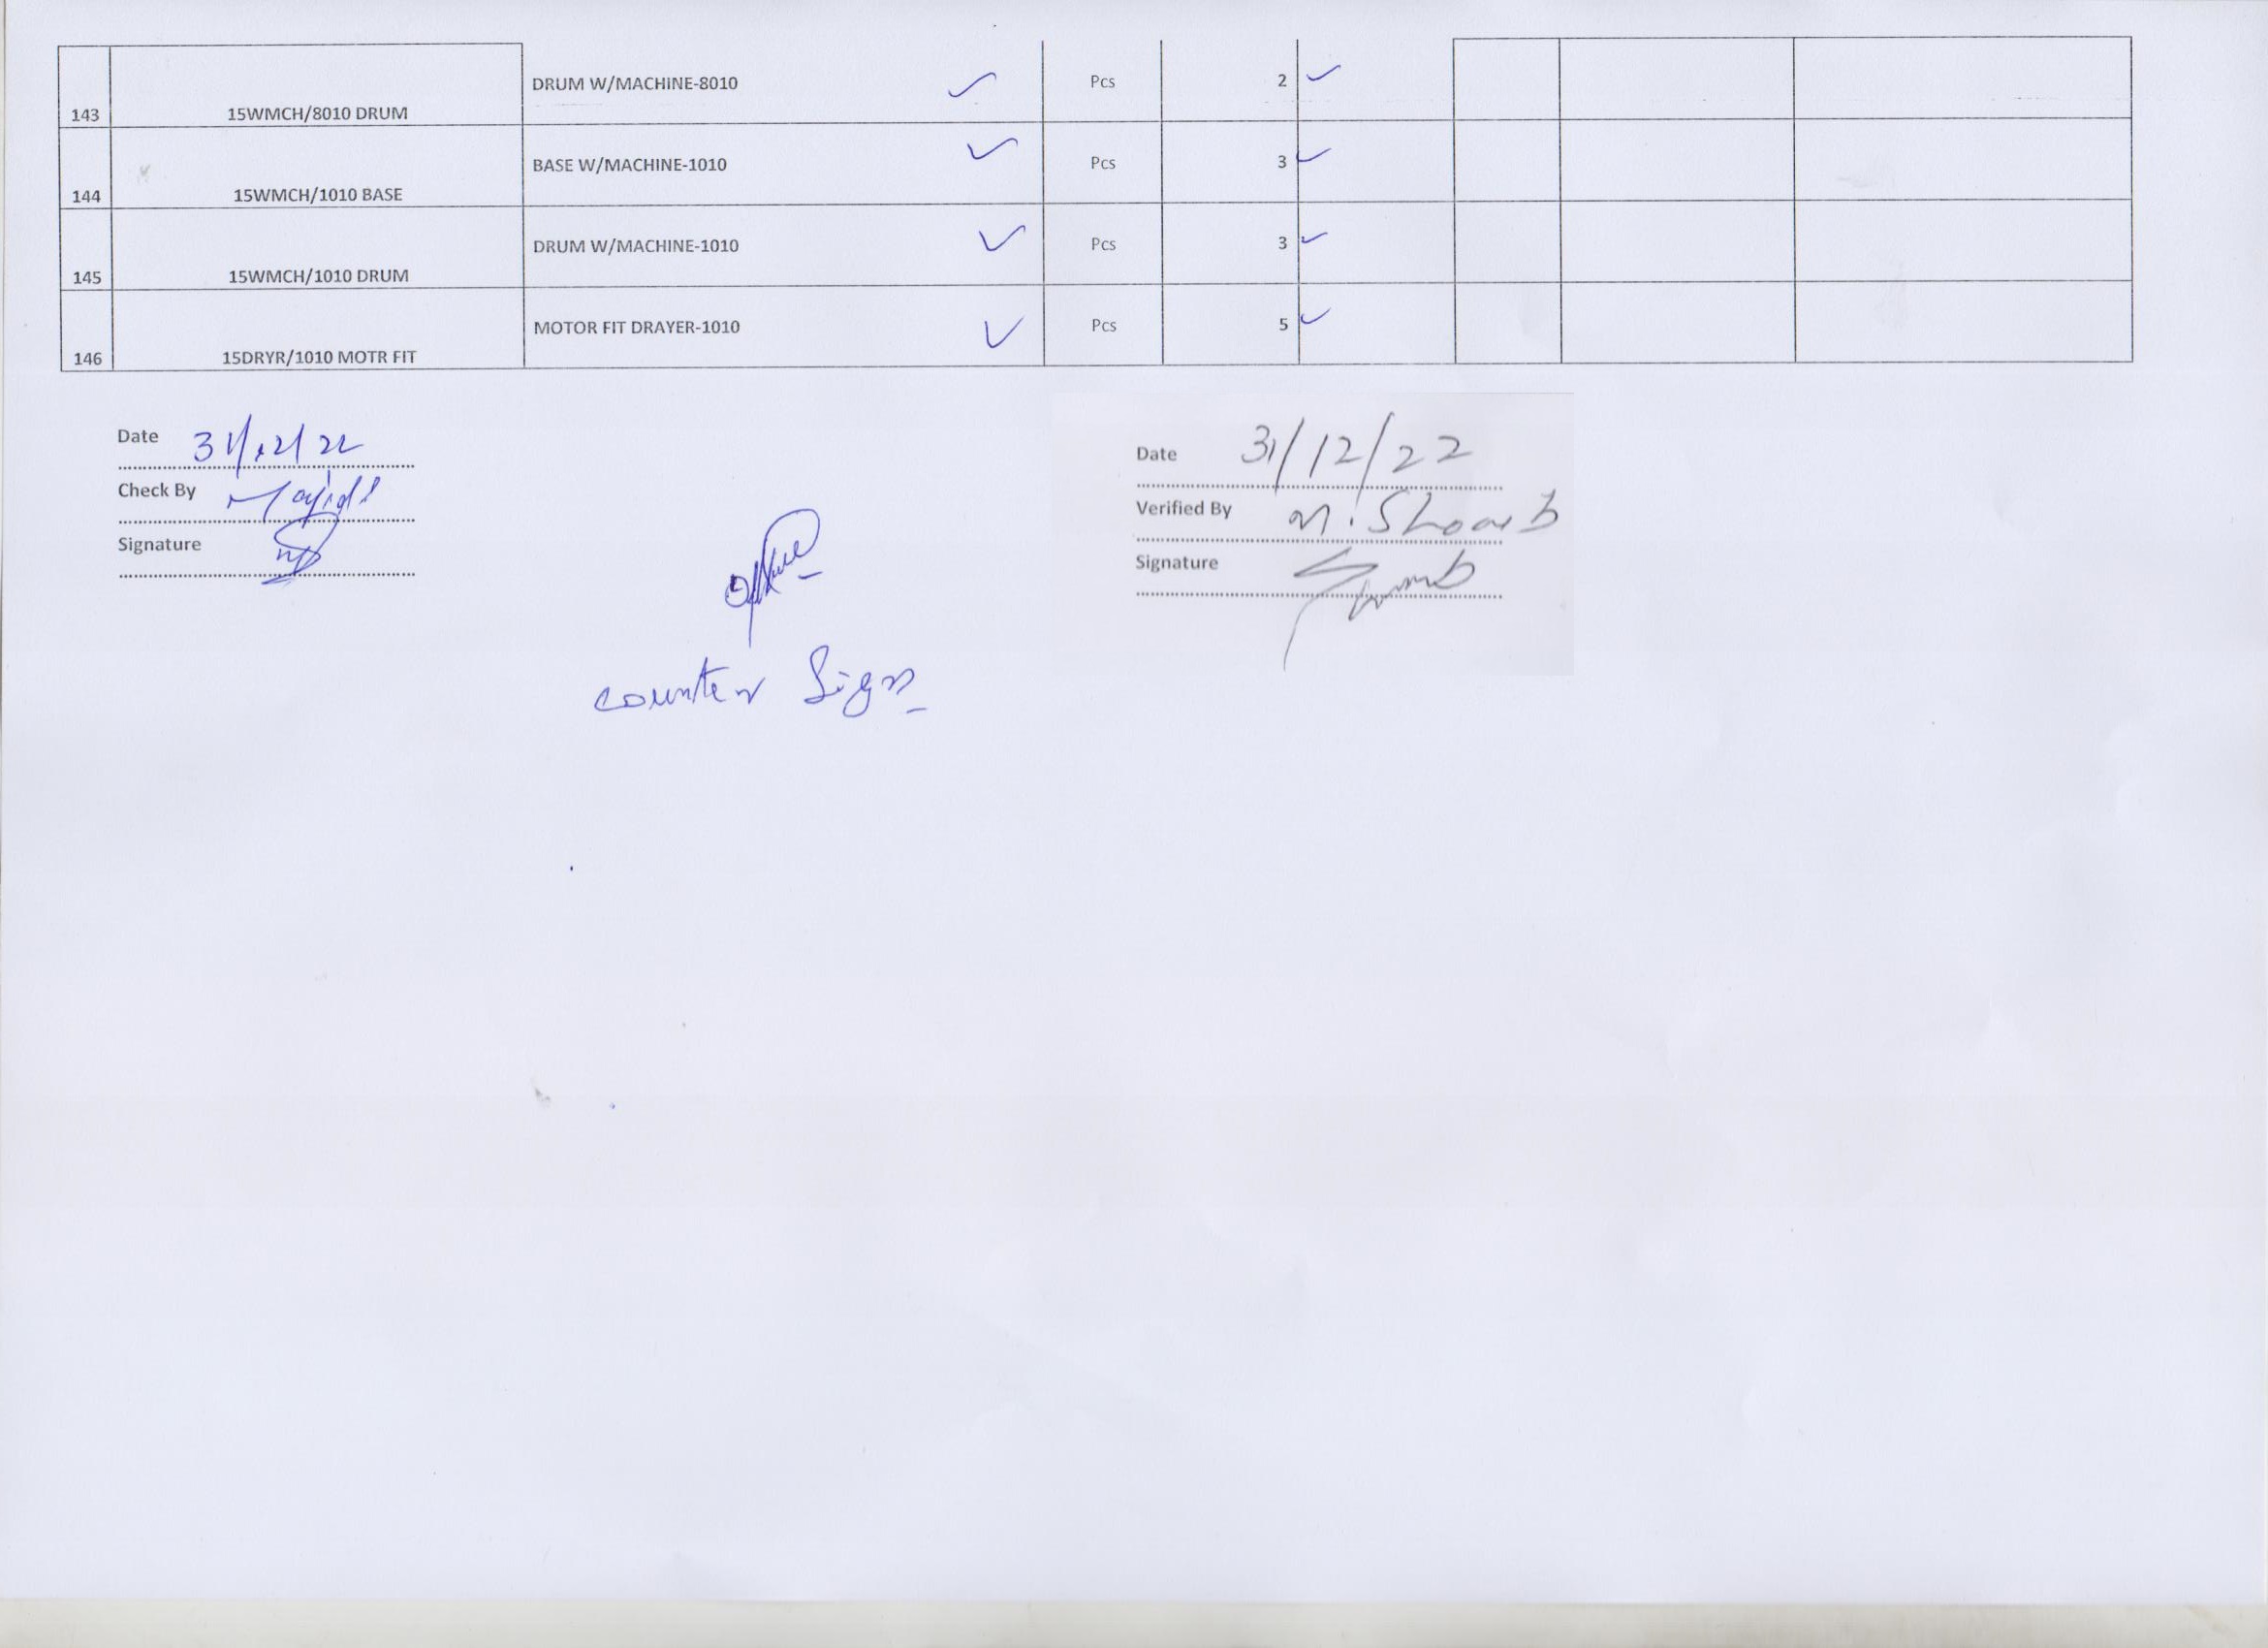 143 15WMCH/8010 DRUM DRUM W/MACHINE-8010 ✓ Pcs 2 ✓
144 15WMCH/1010 BASE BASE W/MACHINE-1010 ✓ Pcs 3 ✓
145 15WMCH/1010 DRUM DRUM W/MACHINE-1010 ✓ Pcs 3 ✓
146 15DRYR/1010 MOTR FIT MOTOR FIT DRAYER-1010 ✓ Pcs 5 ✓
Date 31/12/22
Check By Majid
Signature
counter Sign
Date 31/12/22
Verified By M. Shoaib
Signature